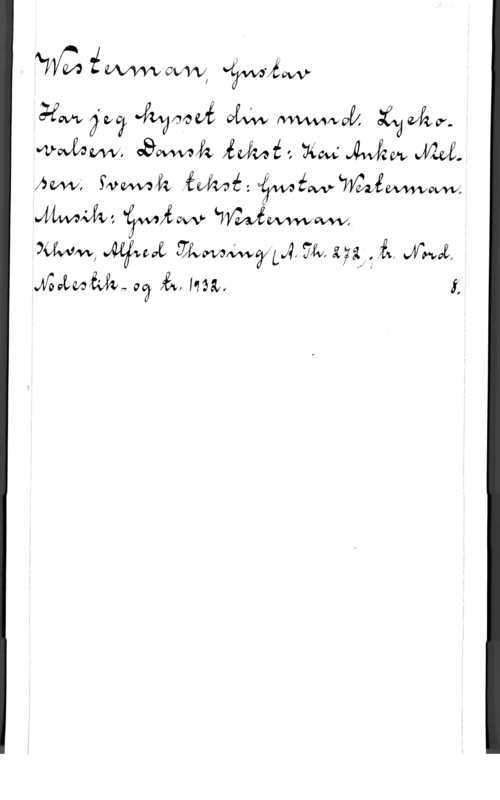 Westerman, Gustav
Har jeg kysset din mund. Lycko-
valsen. Dansk tekst: Kai Anker Niel-
sen. Svensk tekst: Gustav Westerman.
Musik: Gustav Westerman.
Khvn, Alfred Thorsing (A. Th. 272), tr. Nord.
Nodestik- og tr. 1932. 8.